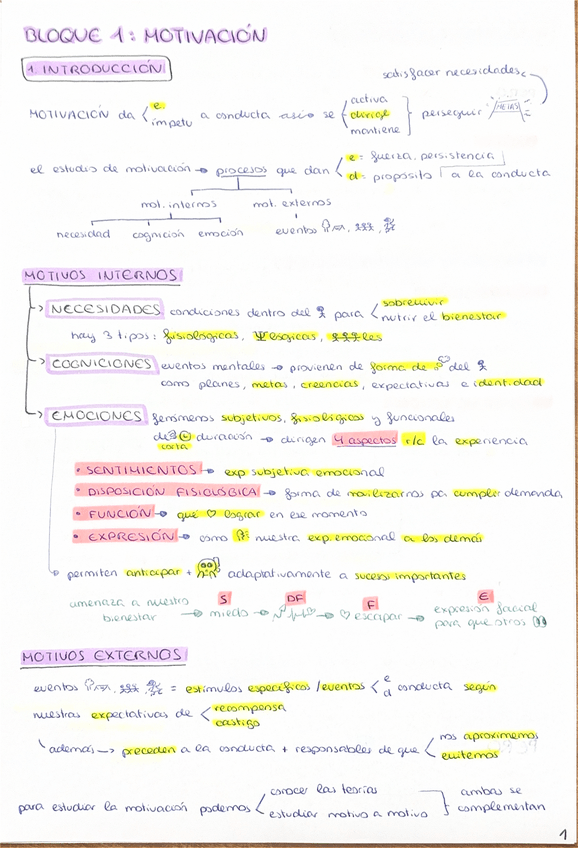 BLOQUE 1: MOTIVACIÓN
1. INTRODUCCIÓN
satisfacer necesidades
MOTIVACIÓN da e. ímpetu a conducta se activa dirige mantiene perseguir METAS
el estudio de motivación → procesos que dan e: fuerza, persistencia d: propósito a la conducta
mot. internos mot. externos
necesidad cognición emoción eventos
MOTIVOS INTERNOS
NECESIDADES condiciones dentro del para sobrevivir nutrir el bienestar
hay 3 tipos: fisiológicas, Ψlógicas, les
COGNICIONES eventos mentales → provienen de forma de del
como planes, metas, creencias, expectativas e identidad
EMOCIONES fenómenos subjetivos, fisiológicos y funcionales
de corta duración → dirigen 4 aspectos r/c la experiencia
• SENTIMIENTOS → exp subjetiva emocional
• DISPOSICIÓN FISIOLÓGICA → forma de movilizarnos pa cumplir demanda
• FUNCIÓN → que ♡ lograr en ese momento
• EXPRESIÓN → como nuestra exp. emocional a los demás
→ permiten anticipar + adaptativamente a sucesos importantes
S DF F E
amenaza a nuestro bienestar → miedo → → ♡ escapar → expresión facial para que otros
MOTIVOS EXTERNOS
eventos = estímulos específicos / eventos e d conducta según
nuestras expectativas de recompensa castigo
además → preceden a la conducta + responsables de que nos aproximemos evitemos
para estudiar la motivación podemos conocer las teorías estudiar motivo a motivo ambas se complementan
1